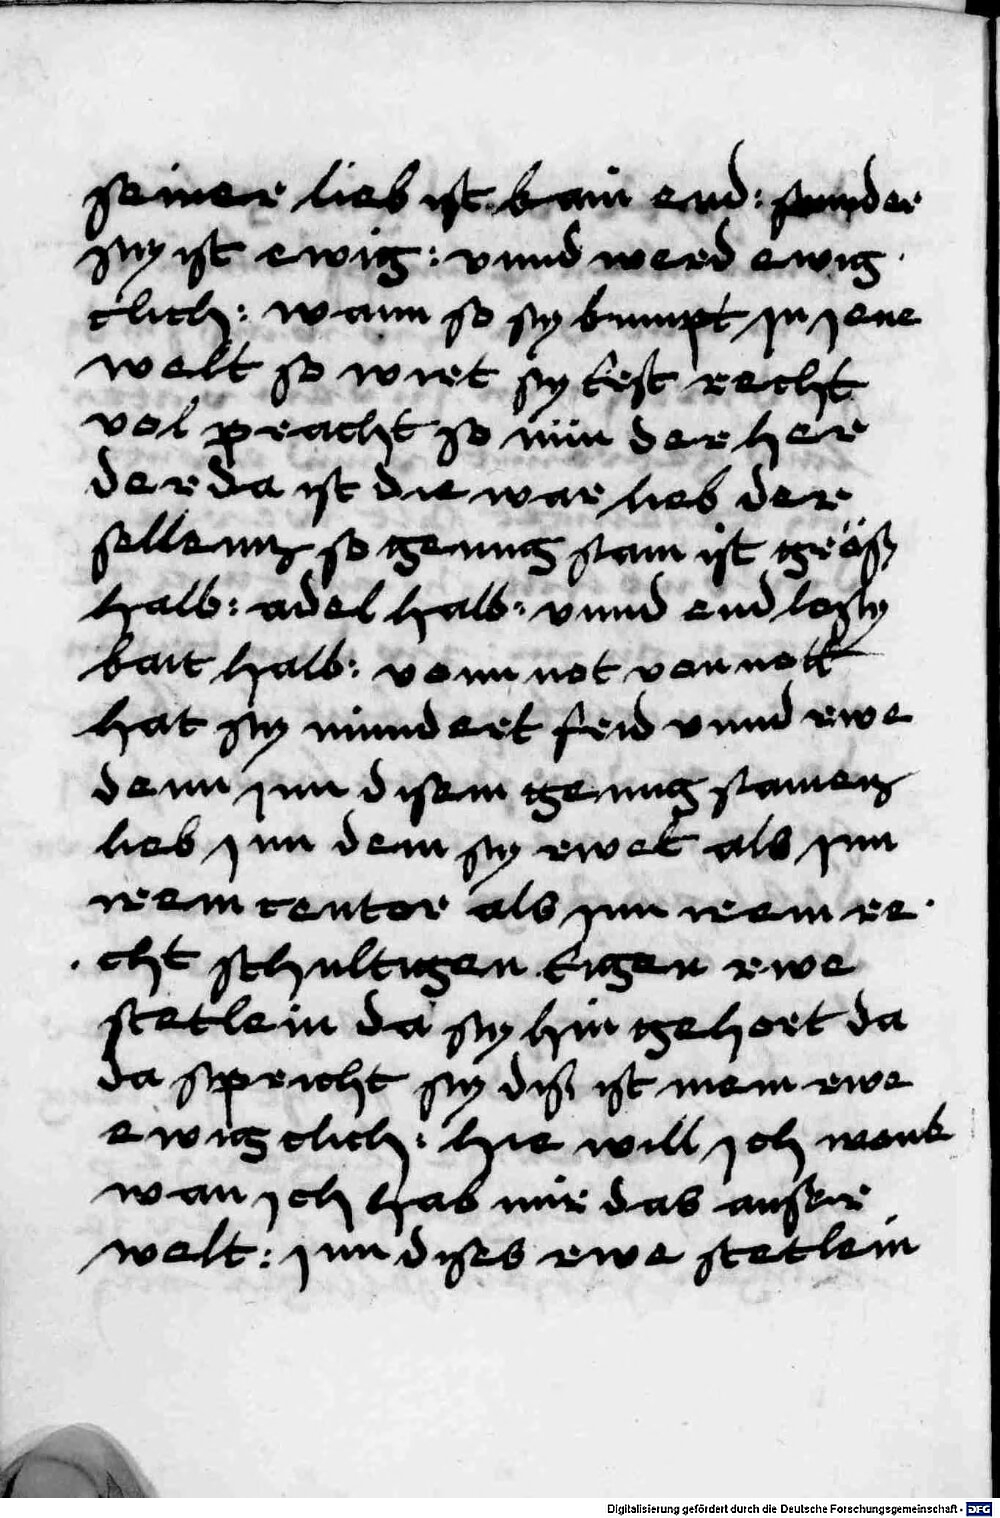 seiner lieb ist kain end: sunder
sy ist ewig: vnnd werd ewig
clich: wann so sy kumpt jn jene
welt so wirt sy erst recht
vol pracht so nün der her
der da ist die war lieb der
sellenn so genug sam ist gröss
halb: adel halb: vnnd end losy
kait halb: vonn not von nott
hat sy niundert frid vnnd rwe
denn jnn disem genug samenn
lieb jnn dem sy rwet als jnn
irem centor als jnn irem re
cht schultigen eigen rwe
stetlein da sy hin gehort da
da spricht sy diss ist mein rwe
ewig clich: hie will jch wonk
wan jch hab mir das ausser
welt: jnn dises rwe stetlein
Digitalisierung gefördert durch die Deutsche Forschungsgemeinschaft - DFG